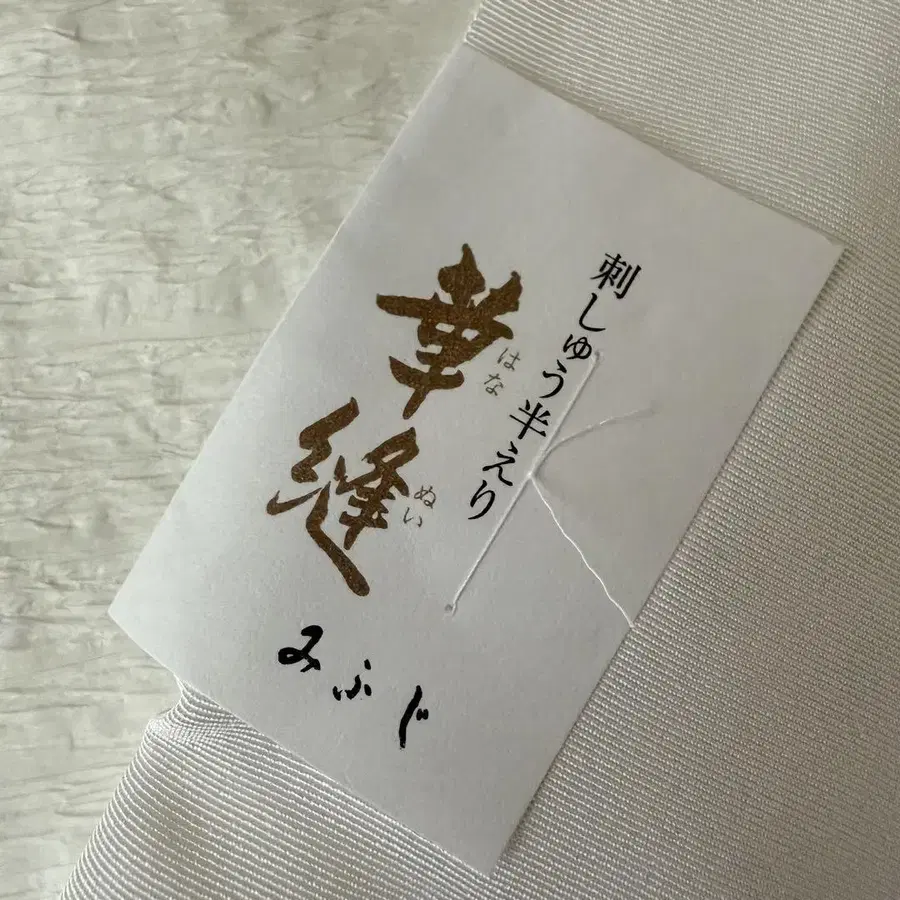 刺しゅう半えり
華縫
はな
ぬい
みふじ